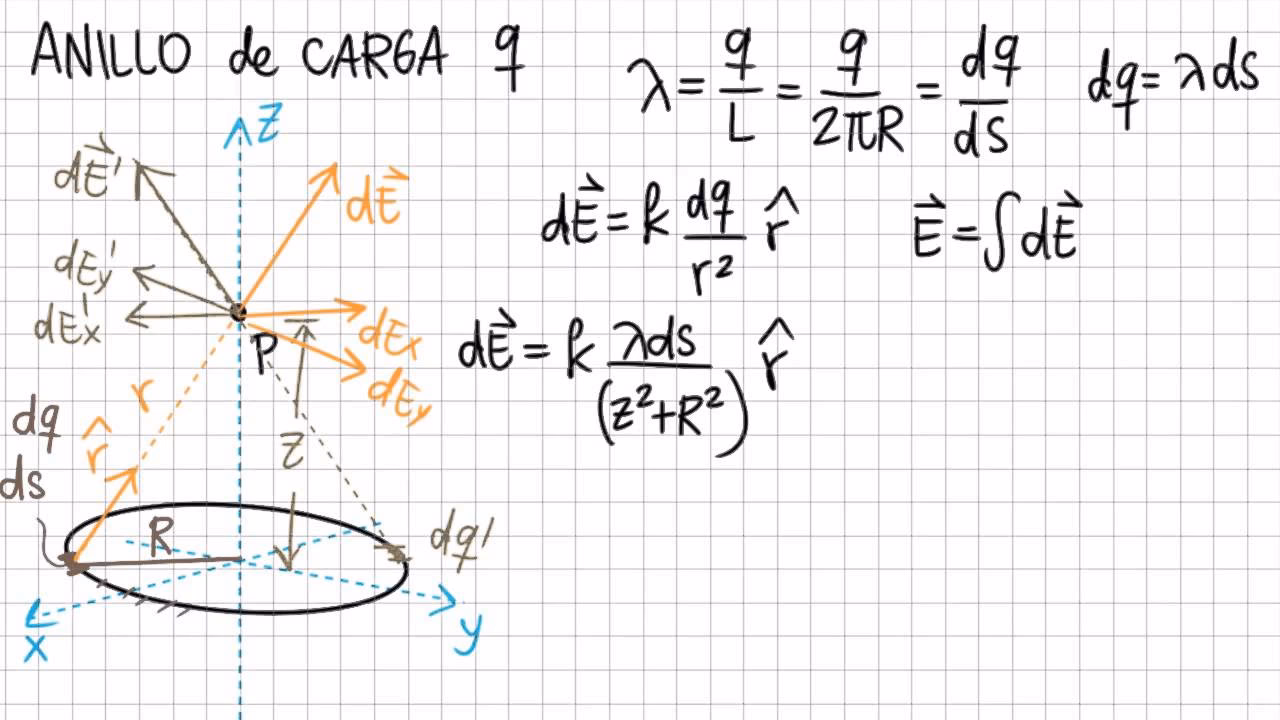 ANILLO de CARGA q
λ = q/L = q/2πR = dq/ds
dq = λds
dE⃗ = k dq/r² r̂
E⃗ = ∫dE⃗
dE⃗ = k λds/(z²+R²) r̂
z
dE⃗'
dE⃗
dEy'
dEx'
dEx
P
dEy
r
dq
r̂
z
ds
R
dq'
x
y